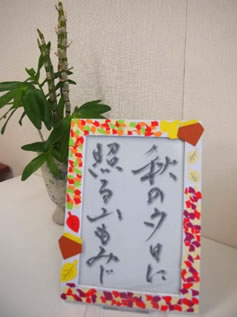 秋の夕日に
照る山もみじ